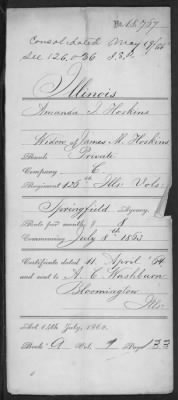 No. 15,757
Consolidated May 19/65
See 126.036 S.S.P.
Illinois
Amanda J. Hoskins
Widow of James M. Hoskins
Rank Private
Company C
Regiment 125th Ills. Vols.
Springfield Agency.
Rate per month, $ 8
Commencing July 8th 1863
Certificate dated 11 April '64
and sent to A. C. Washburn
Bloomington
Ills.
Act 14th July, 1862.
Book A Vol. 9 Page 133